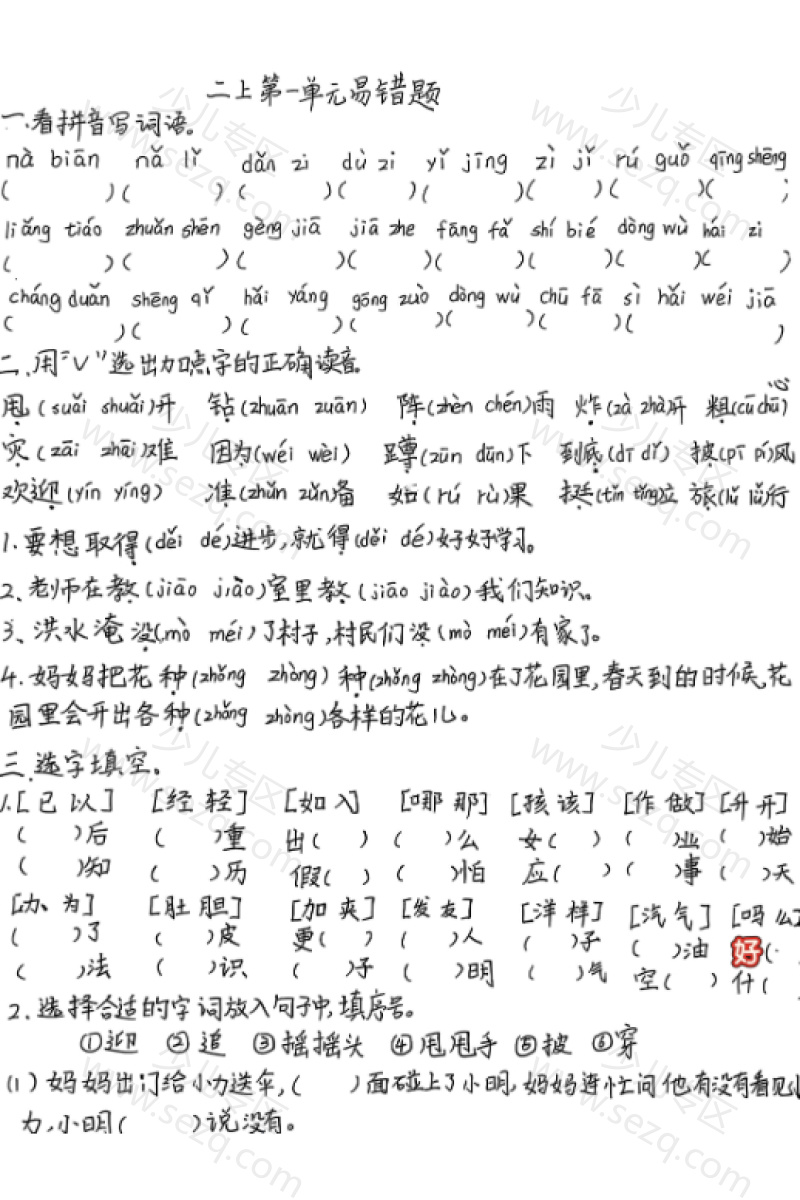 二上第一单元易错题
一.看拼音写词语。
nà biān nǎ lǐ dǎn zi dù zi yǐ jīng zì jǐ rú guǒ qīng shēng
( )( )( )( )( )( )( )( )
liǎng tiáo zhuǎn shēn gèng jiā jiā zhe fāng fǎ shí bié dòng wù hái zi
( )( )( )( )( )( )( )( )
cháng duǎn shēng qì hǎi yáng gōng zuò dòng wù chū fā sì hǎi wéi jiā
( )( )( )( )( )( )( )
二.用"√"选出加点字的正确读音。
甩(suǎi shuǎi)开 钻(zhuān zuān) 阵(zhèn chén)雨 炸(zà zhà)开 粗(cū chū)心
灾(zāi zhāi)难 因为(wéi wèi) 蹲(zūn dūn)下 到底(dī dǐ) 披(pī pí)风
欢迎(yín yíng) 准(zhǔn zǔn)备 如(rú rù)果 挺(tǐn tǐng)立 旅(lǚ lǔ)行
1.要想取得(děi dé)进步,就得(děi dé)好好学习。
2、老师在教(jiāo jiào)室里教(jiāo jiào)我们知识。
3、洪水淹没(mò méi)了村子,村民们没(mò méi)有家了。
4.妈妈把花种(zhǒng zhòng)种(zhǒng zhòng)在了花园里,春天到的时候,花
园里会开出各种(zhǒng zhòng)各样的花儿。
三.选字填空。
1.[已 以] [经 轻] [如 入] [哪 那] [孩 该] [作 做] [升 开]
( )后 ( )重 出( ) ( )么 女( ) ( )业 ( )始
( )知 ( )历 假( ) ( )怕 应( ) ( )事 ( )天
[办、为] [肚 胆] [加 夹] [发 友] [洋 样] [汽 气] [吗 么]
( )了 ( )皮 更( ) ( )人 ( )子 ( )油 好(
( )法 ( )识 ( )子 ( )明 ( )气 空( ) 什(
2.选择合适的字词放入句子中,填序号。
①迎 ②追 ③摇摇头 ④甩甩手 ⑤披 ⑥穿
(1)妈妈出门给小力送伞,( )面碰上了小明,妈妈连忙问他有没有看见小
力,小明( )说没有。
少儿专区
www.sezq.com